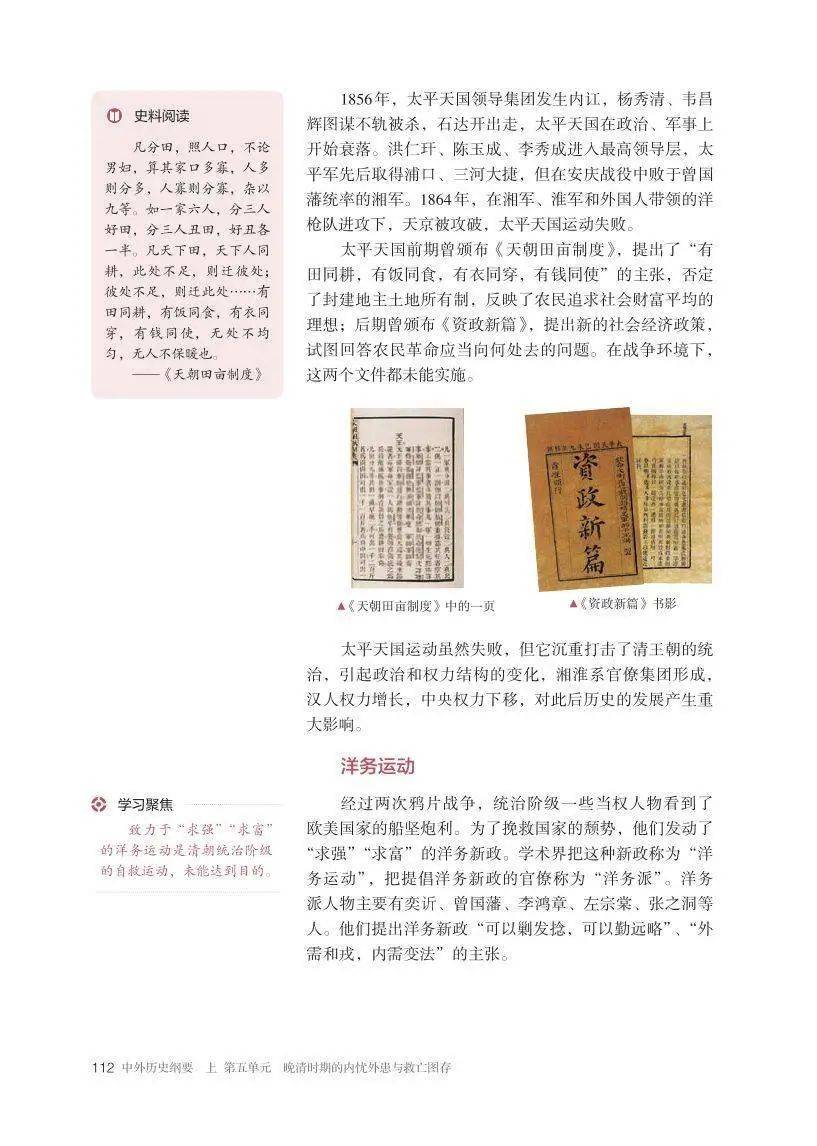 史料阅读
凡分田，照人口，不论
男妇，算其家口多寡，人多
则分多，人寡则分寡，杂以
九等。如一家六人，分三人
好田，分三人丑田，好丑各
一半。凡天下田，天下人同
耕，此处不足，则迁彼处；
彼处不足，则迁此处……有
田同耕，有饭同食，有衣同
穿，有钱同使，无处不均
匀，无人不保暖也。
——《天朝田亩制度》
1856年，太平天国领导集团发生内讧，杨秀清、韦昌
辉图谋不轨被杀，石达开出走，太平天国在政治、军事上
开始衰落。洪仁玕、陈玉成、李秀成进入最高领导层，太
平军先后取得浦口、三河大捷，但在安庆战役中败于曾国
藩统率的湘军。1864年，在湘军、淮军和外国人带领的洋
枪队进攻下，天京被攻破，太平天国运动失败。
太平天国前期曾颁布《天朝田亩制度》，提出了“有
田同耕，有饭同食，有衣同穿，有钱同使”的主张，否定
了封建地主土地所有制，反映了农民追求社会财富平均的
理想；后期曾颁布《资政新篇》，提出新的社会经济政策，
试图回答农民革命应当向何处去的问题。在战争环境下，
这两个文件都未能实施。
資政新篇
▲《天朝田亩制度》中的一页
▲《资政新篇》书影
太平天国运动虽然失败，但它沉重打击了清王朝的统
治，引起政治和权力结构的变化，湘淮系官僚集团形成，
汉人权力增长，中央权力下移，对此后历史的发展产生重
大影响。
洋务运动
学习聚焦
致力于“求强”“求富”
的洋务运动是清朝统治阶级
的自救运动，未能达到目的。
经过两次鸦片战争，统治阶级一些当权人物看到了
欧美国家的船坚炮利。为了挽救国家的颓势，他们发动了
“求强”“求富”的洋务新政。学术界把这种新政称为“洋
务运动”，把提倡洋务新政的官僚称为“洋务派”。洋务
派人物主要有奕䜣、曾国藩、李鸿章、左宗棠、张之洞等
人。他们提出洋务新政“可以剿发捻，可以勤远略”、“外
需和戎，内需变法”的主张。
112 中外历史纲要 上 第五单元 晚清时期的内忧外患与救亡图存